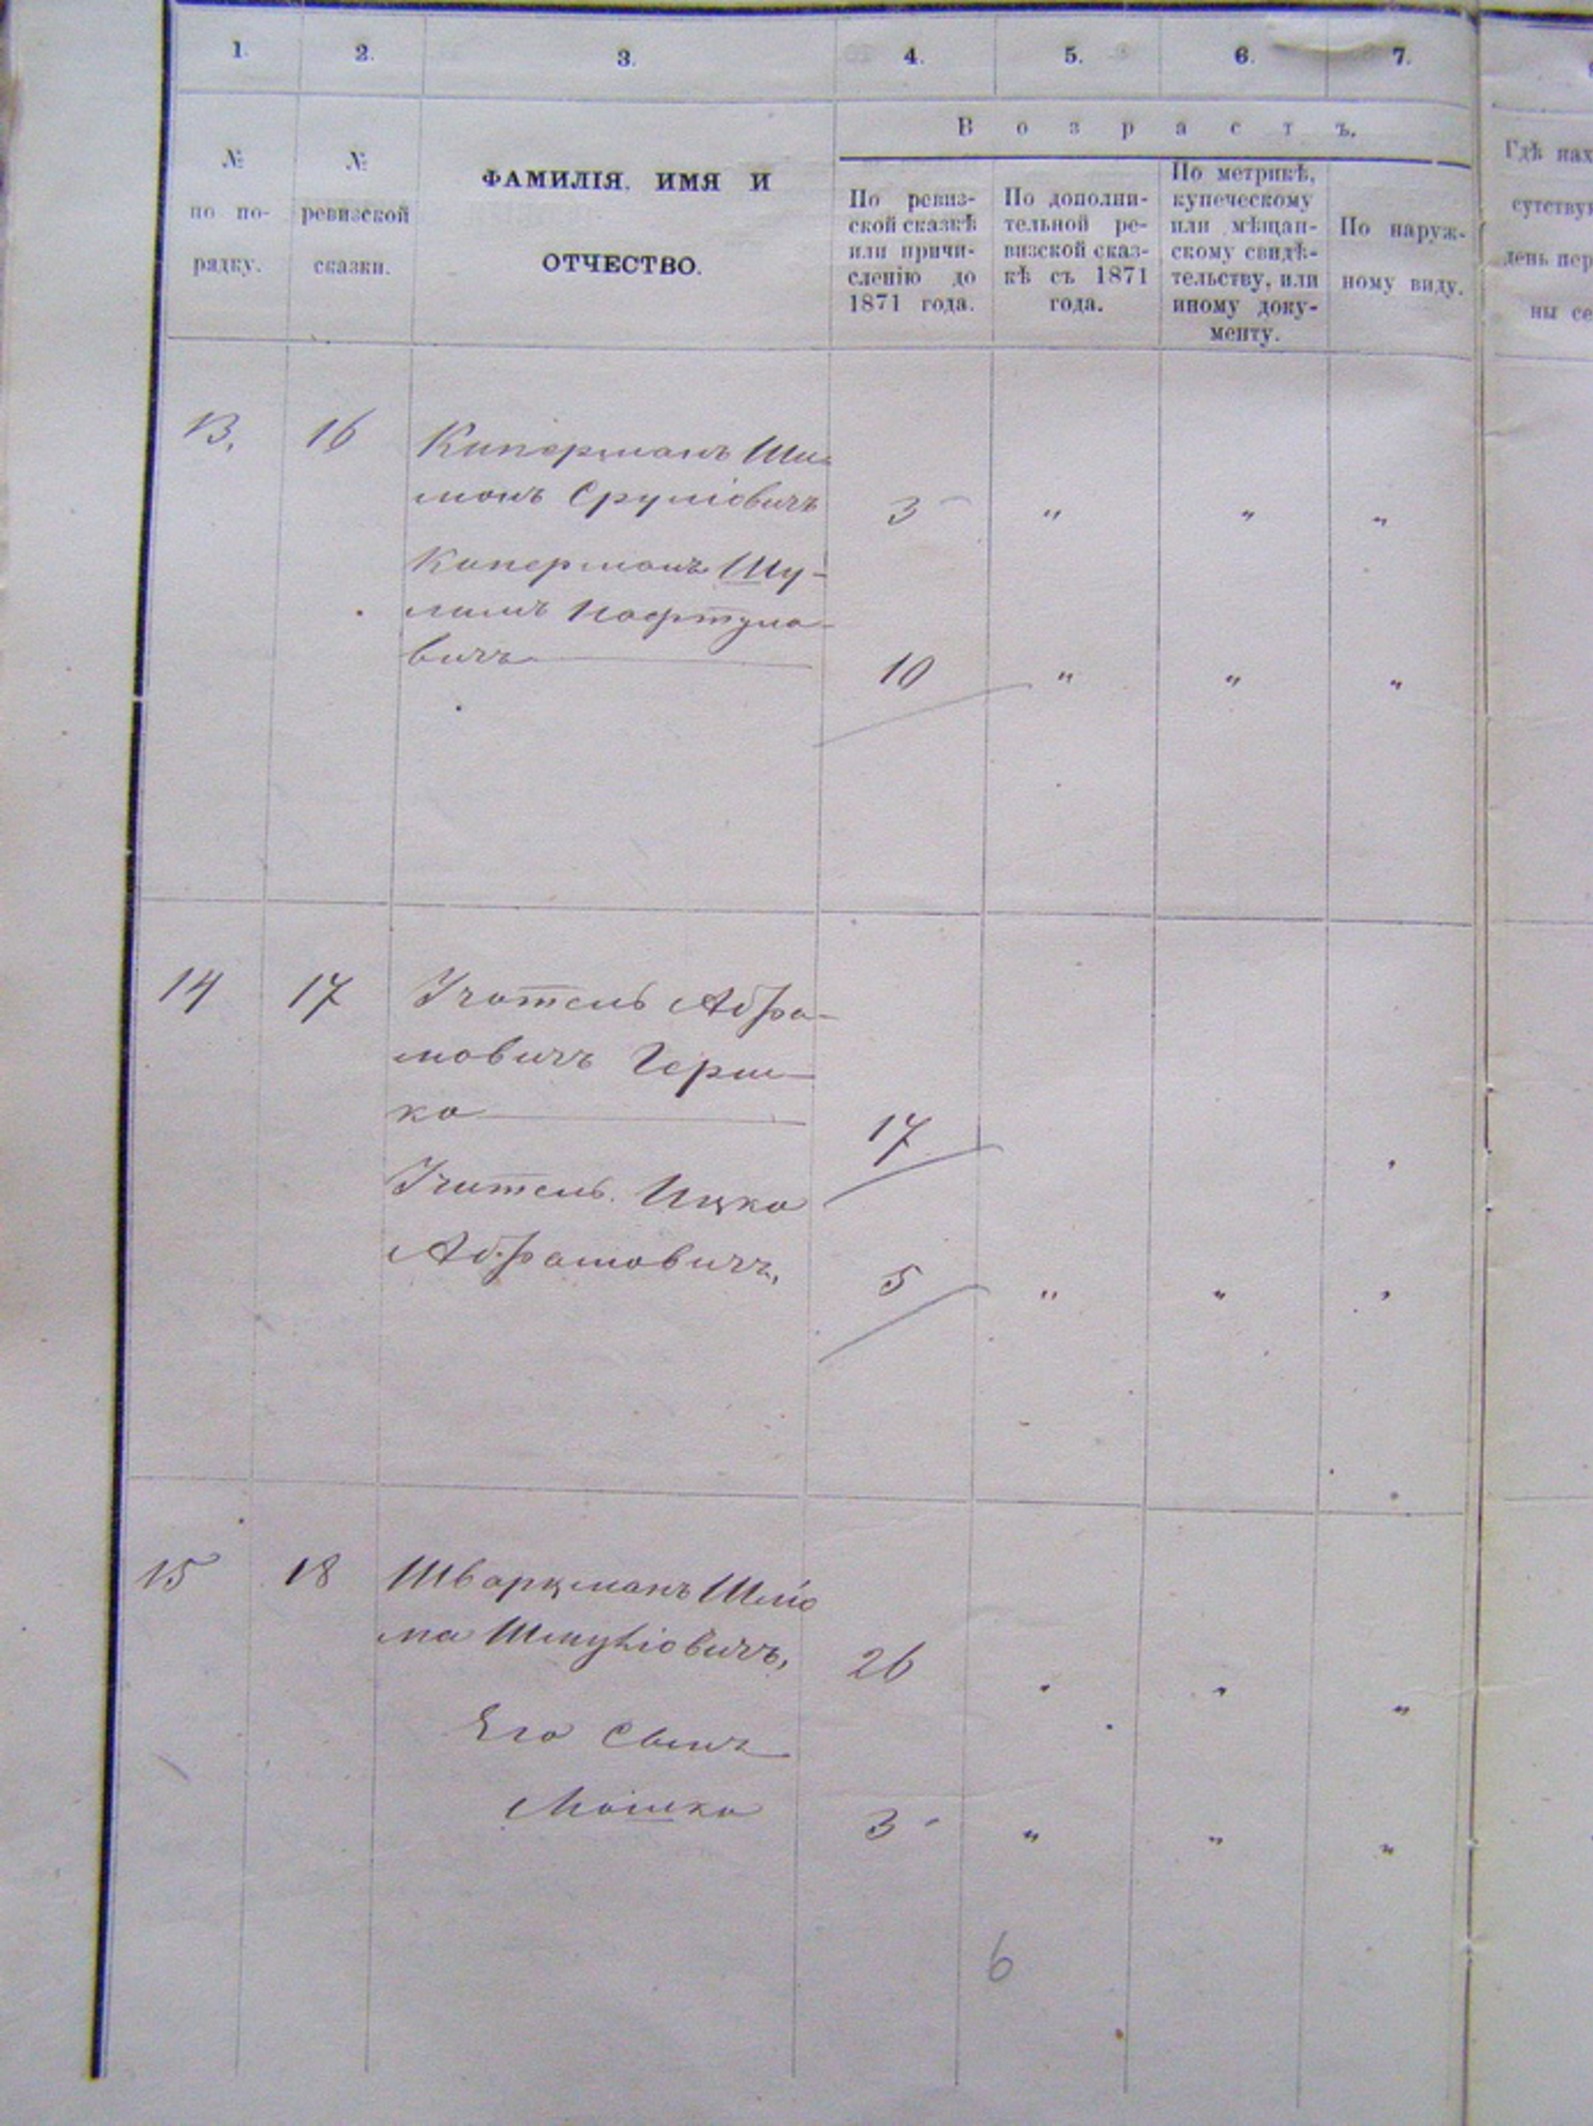 1. 2. 3. 4. 5. 6. 7.
В о з р а с т ъ.
№
по по-
рядку.
№
ревизской
сказки.
ФАМИЛІЯ, ИМЯ И
ОТЧЕСТВО.
По ревиз-
ской сказкѣ
или причи-
сленію до
1871 года.
По дополни-
тельной ре-
визской сказ-
кѣ съ 1871
года.
По метрикѣ,
купеческому
или мѣщан-
скому свидѣ-
тельству, или
иному доку-
менту.
По наруж-
ному виду.
Гдѣ нах
сутствую
день пер
ны се
13. 16 Киперманъ Ши-
монъ Сруліовичъ 3 " " "
Киперманъ Шу-
лимъ Нафтула-
вичъ 10 " " "
14 17 Учитель Абра-
мовичъ Герш-
ко 17
Учитель Ицко
Абрамовичъ, 5 " " "
15 18 Шварцманъ Шлio
ма Шмуліовичъ, 26 " " "
Его Сынъ
Мошко 3 " " "
6